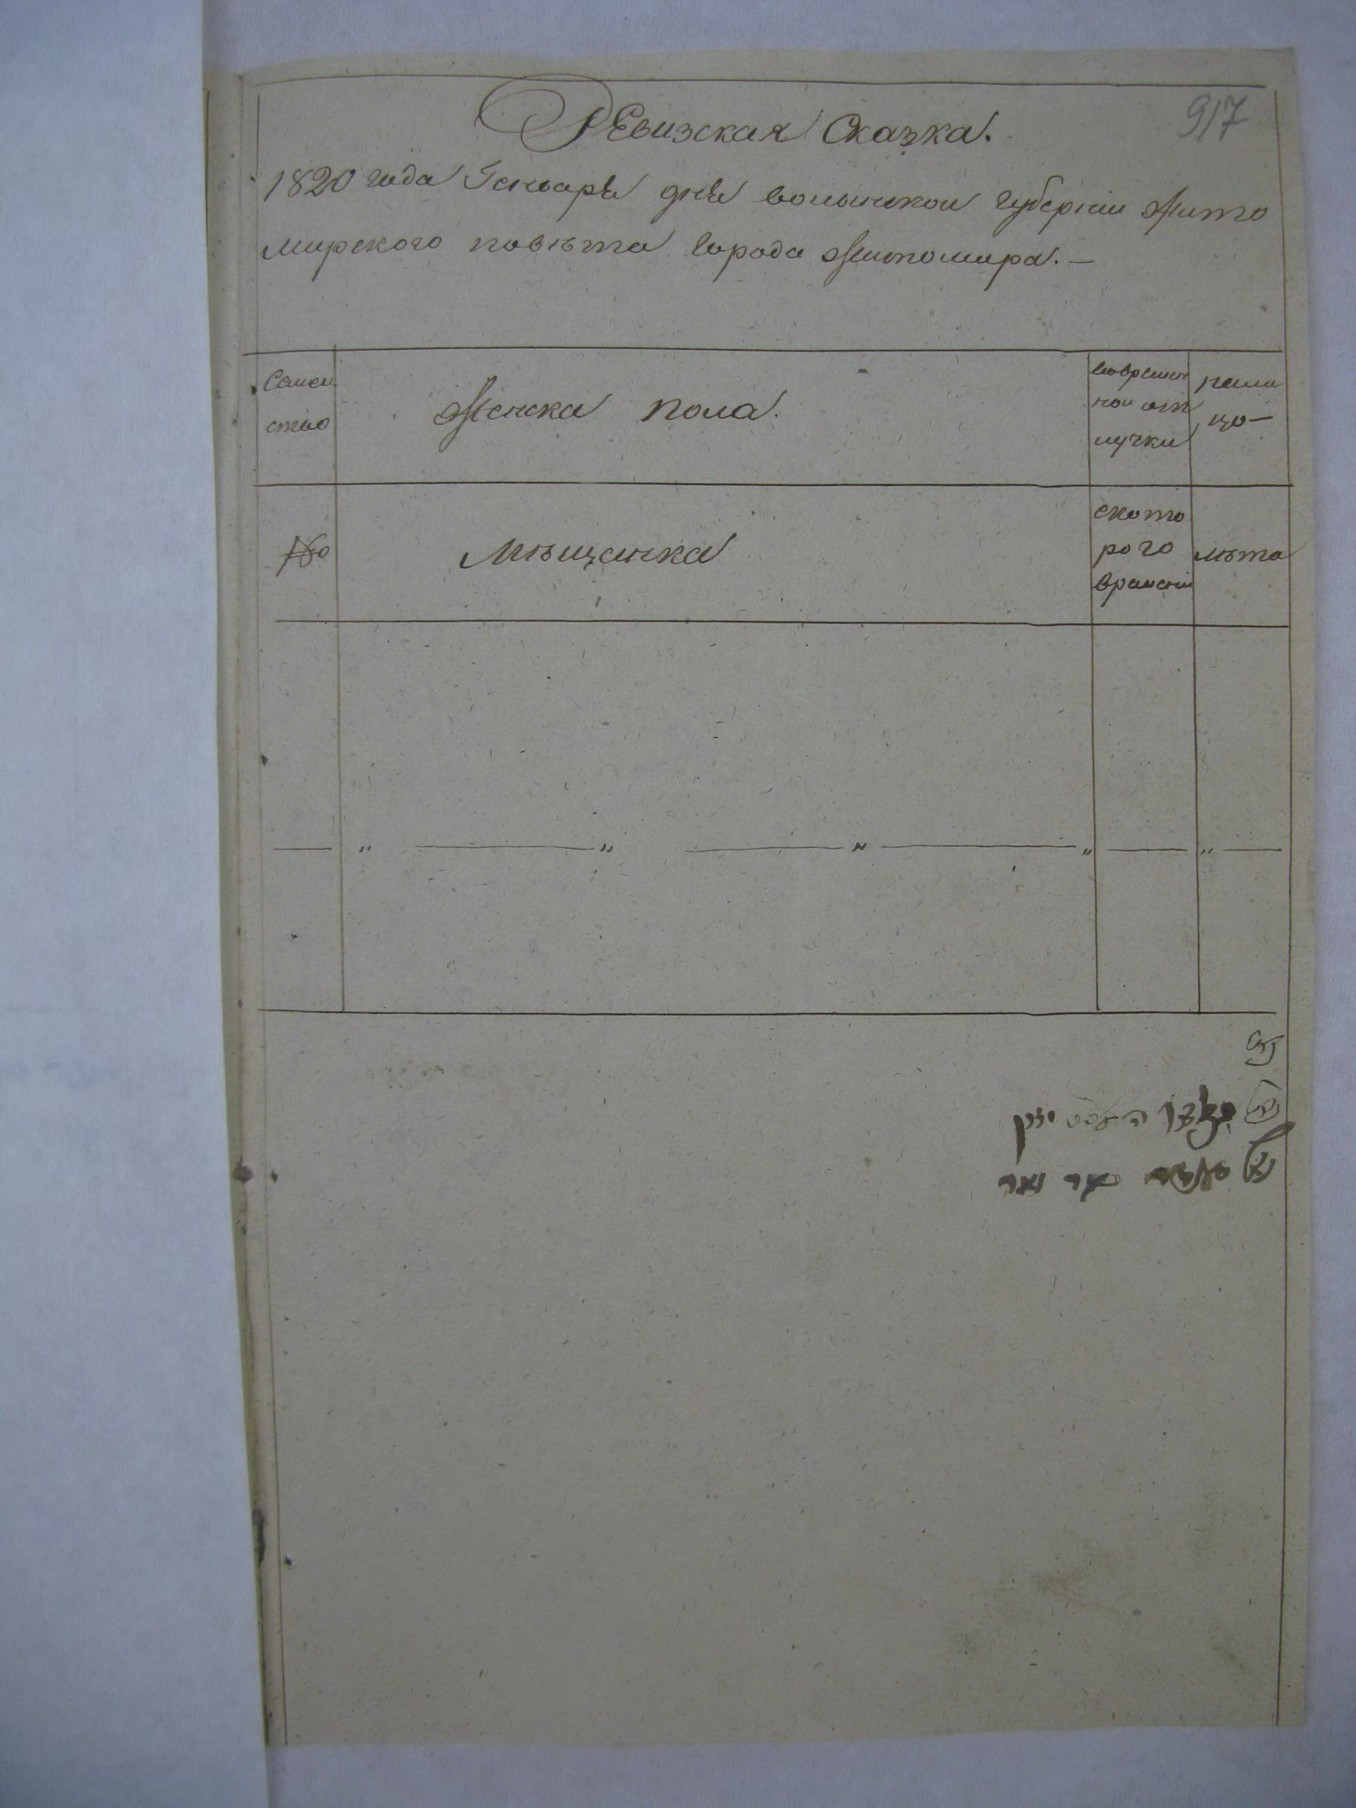 917
РЕвизская Сказка.
1820 года Генваря дня волынской губернии Жито
мирского повѣта города Житомира. —
Семей
ство
Женска пола.
вовремен
ной от
лучки
нали
цо —
№
Мѣщанка
с кото
рого
времени
лѣта